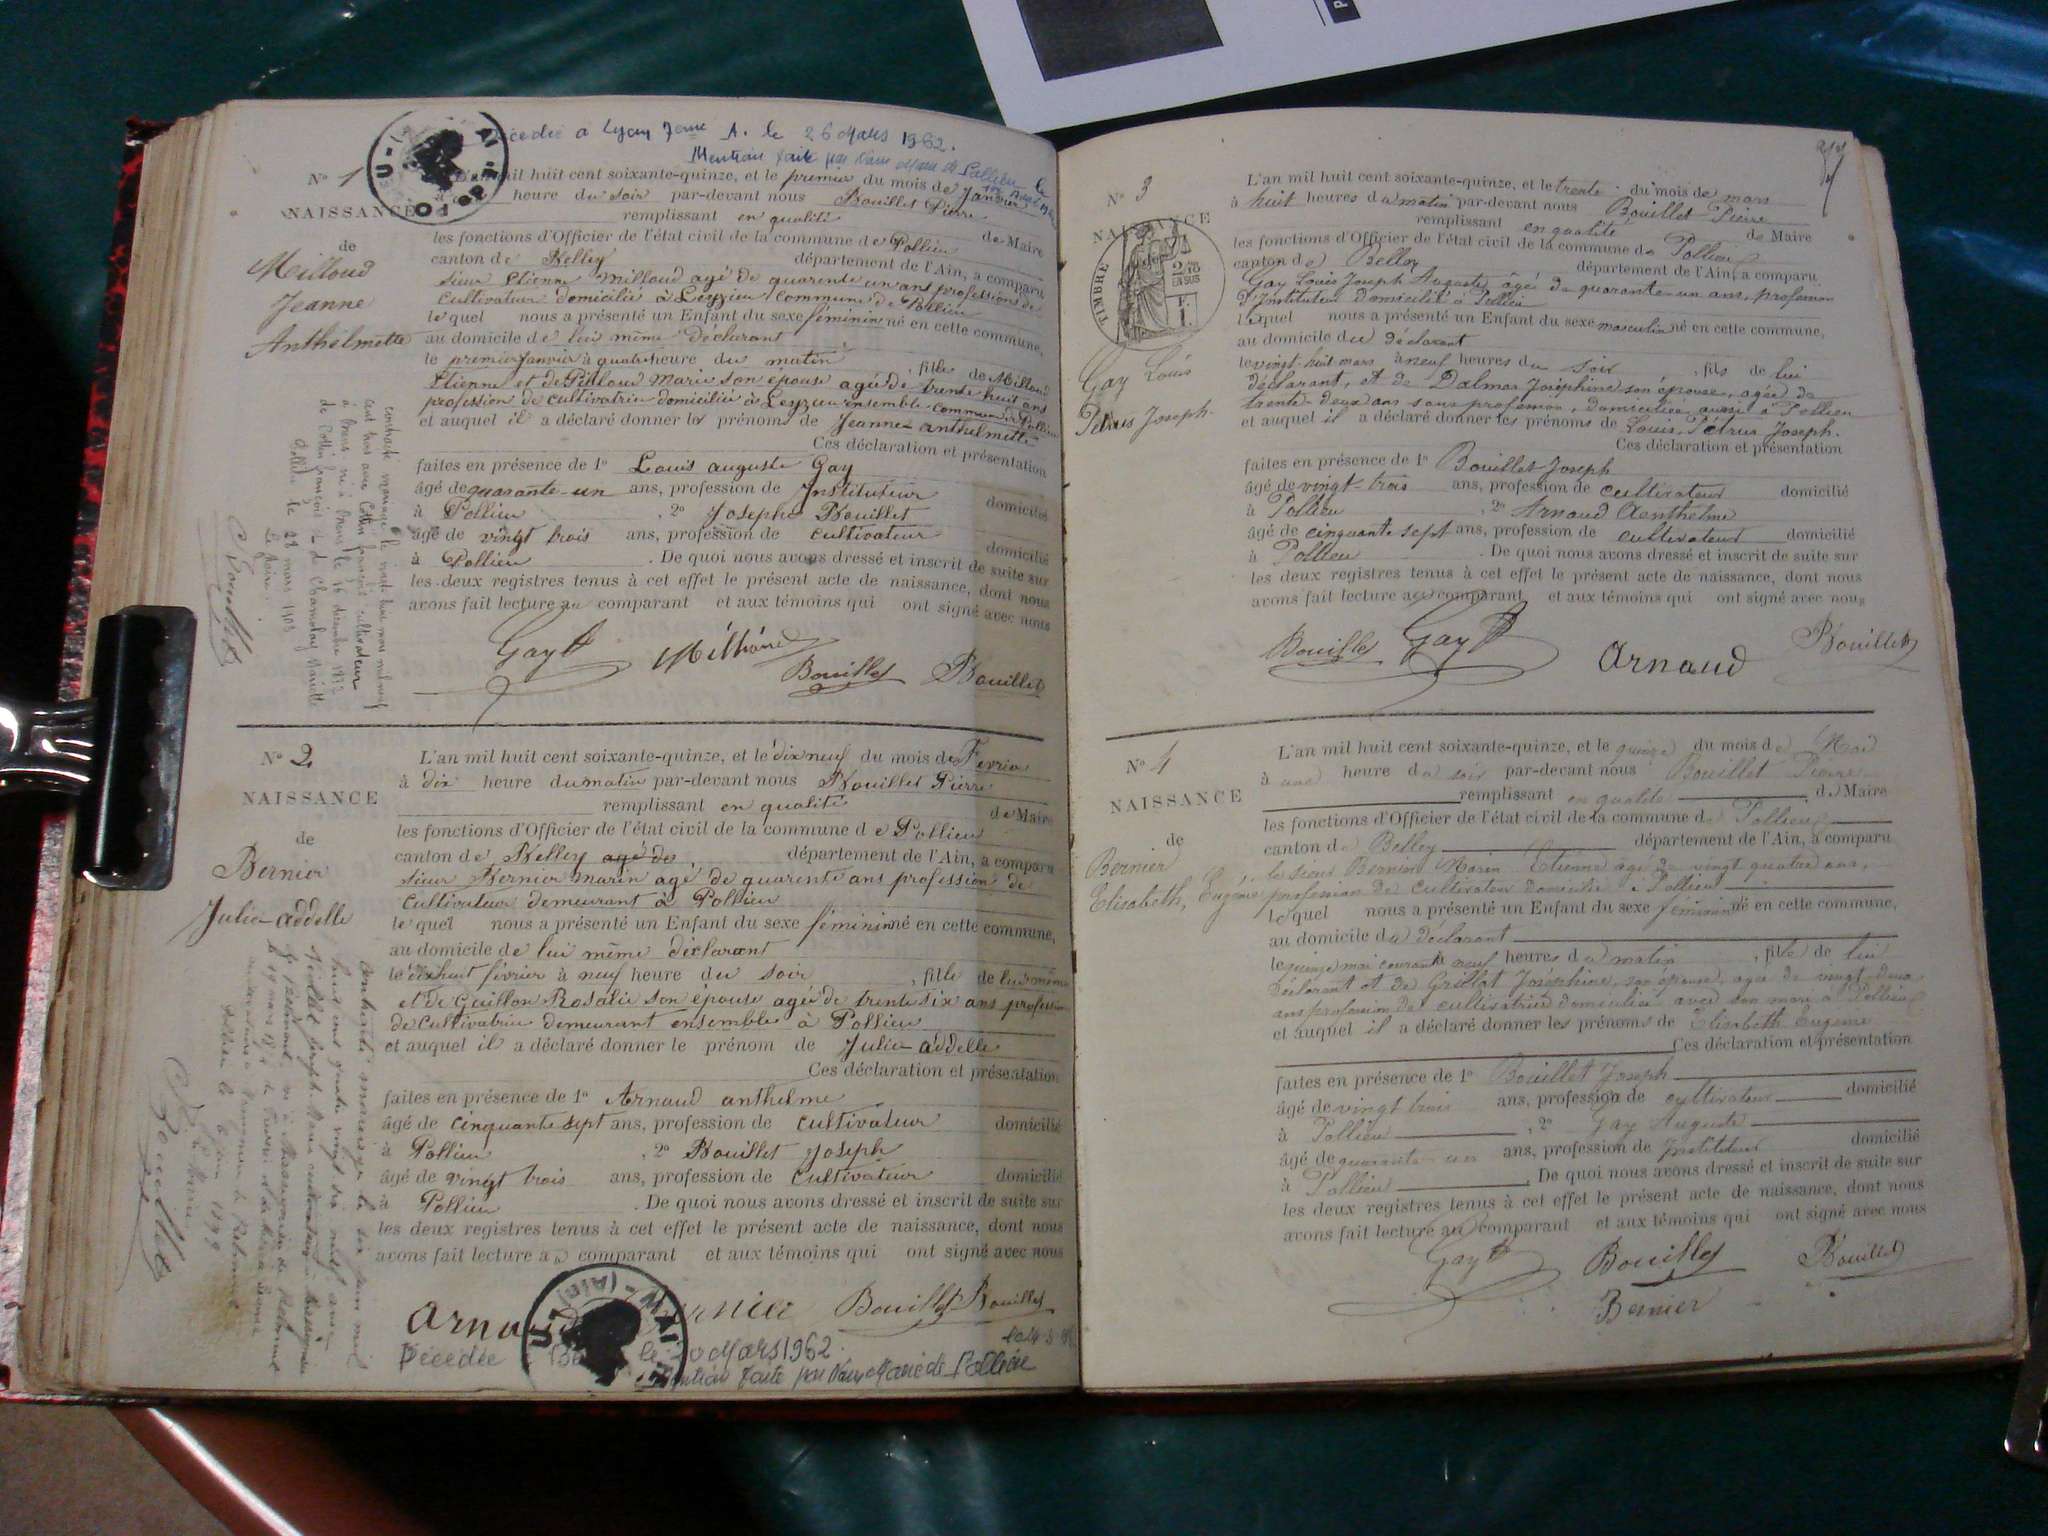 à Lyon 7eme A. le 26 Mars 1962.
Mention faite par Nous Maire de Pollieu le
No 1
NAISSANCE
de
Milloud
Jeanne
Anthelmette
mil huit cent soixante-quinze, et le premier du mois de Janvier
heure du soir par-devant nous Bouillet Pierre
remplissant en qualité de Maire
les fonctions d'Officier de l'état civil de la commune de Pollieu
canton de Belley département de l'Ain, a comparu
sieur Etienne Milloud agé de quarente un ans profession de
cultivateur domicilié à Leyzieu commune de Pollieu
lequel nous a présenté un Enfant du sexe féminin né en cette commune,
au domicile de lui même déclarant
le premier Janvier à quatre heure du matin , fille de Milloud
Etienne et de Marie son épouse agée de trente huit ans
profession de cultivatrice domicilié à Leyzieu ensemble commune de Pollieu
et auquel il a déclaré donner les prénoms de Jeanne anthelmette
Ces déclaration et présentation
faites en présence de 1° Louis auguste Gay
âgé de quarante-un ans, profession de Instituteur domicilié
à Pollieu , 2° Joseph Bouillet
âgé de vingt trois ans, profession de cultivateur domicilié
à Pollieu . De quoi nous avons dressé et inscrit de suite sur
les deux registres tenus à cet effet le présent acte de naissance, dont nous
avons fait lecture au comparant et aux témoins qui ont signé avec nous
Gay Bouillet Bouillet
contracté mariage le vingt huit mars mil neuf
cent trois avec Cottin françois cultivateur
à Brens né à Brens le 16 décembre 1872
Pollieu le 28 mars 1903
Le Maire
Bouillet
No 2
NAISSANCE
de
Bernier
Julie addelle
L'an mil huit cent soixante-quinze, et le dix neuf du mois de Fevrier
à dix heure du matin par-devant nous Bouillet Pierre
remplissant en qualité de Maire
les fonctions d'Officier de l'état civil de la commune de Pollieu
canton de Belley agé de département de l'Ain, a comparu
sieur Bernier marin agé de quarente ans profession de
cultivateur demeurant à Pollieu
lequel nous a présenté un Enfant du sexe féminin né en cette commune,
au domicile de lui même déclarant
le dix huit février à neuf heure du soir , fille de lui même
et de Guillon Rosalie son épouse agée de trente six ans profession
de cultivatrice demeurant ensemble à Pollieu
et auquel il a déclaré donner le prénom de Julie addelle
Ces déclaration et présentation
faites en présence de 1° Arnaud anthelme
âgé de cinquante sept ans, profession de cultivateur domicilié
à Pollieu , 2° Bouillet Joseph
âgé de vingt trois ans, profession de cultivateur domicilié
à Pollieu . De quoi nous avons dressé et inscrit de suite sur
les deux registres tenus à cet effet le présent acte de naissance, dont nous
avons fait lecture au comparant et aux témoins qui ont signé avec nous
Bouillet Bouillet
Décédée le Mars 1962.
Mention faite par Nous Maire de Pollieu
contracté mariage le six juin mil
huit cent quatre vingt dix neuf avec
Bouillet
No 3
NAISSANCE
de
TIMBRE
Gay Louis
Petrus Joseph
L'an mil huit cent soixante-quinze, et le trente du mois de mars
à huit heures du matin par-devant nous Bouillet Pierre
remplissant en qualité de Maire
les fonctions d'Officier de l'état civil de la commune de Pollieu
canton de Belley département de l'Ain, a comparu
Gay Louis Joseph Auguste, âgé de quarante-un ans, profession
d'Instituteur domicilié à Pollieu
lequel nous a présenté un Enfant du sexe masculin né en cette commune,
au domicile du déclarant
le vingt-huit mars à neuf heures du soir , fils de lui
déclarant, et de Dalmas Joséphine son épouse, agée de
trente-deux ans sans profession, domiciliée aussi à Pollieu
et auquel il a déclaré donner les prénoms de Louis, Petrus Joseph.
Ces déclaration et présentation
faites en présence de 1° Bouillet Joseph
âgé de vingt-trois ans, profession de cultivateur domicilié
à Pollieu , 2° Arnaud Aenthelme
âgé de cinquante sept ans, profession de cultivateur domicilié
à Pollieu . De quoi nous avons dressé et inscrit de suite sur
les deux registres tenus à cet effet le présent acte de naissance, dont nous
avons fait lecture au comparant et aux témoins qui ont signé avec nous
Bouillet Gay Arnaud Bouillet
No 4
NAISSANCE
de
Bernier
Elisabeth, Eugénie
L'an mil huit cent soixante-quinze, et le quinze du mois de Mai
à une heure du soir par-devant nous Bouillet Pierre
remplissant en qualité de Maire
les fonctions d'Officier de l'état civil de la commune de Pollieu
canton de Belley département de l'Ain, a comparu
le sieur Bernier Marin Etienne âgé de vingt quatre ans,
profession de cultivateur domicilié à Pollieu
lequel nous a présenté un Enfant du sexe féminin né en cette commune,
au domicile du déclarant
le quinze mai courant à neuf heures du matin , fille de lui
déclarant et de Grillot Joséphine, son épouse, agée de vingt-deux
ans profession de cultivatrice domiciliée avec son mari à Pollieu
et auquel il a déclaré donner les prénoms de Elisabeth Eugénie
Ces déclaration et présentation
faites en présence de 1° Bouillet Joseph
âgé de vingt trois ans, profession de cultivateur domicilié
à Pollieu , 2° Gay Auguste
âgé de quarante un ans, profession de Instituteur domicilié
à Pollieu . De quoi nous avons dressé et inscrit de suite sur
les deux registres tenus à cet effet le présent acte de naissance, dont nous
avons fait lecture au comparant et aux témoins qui ont signé avec nous
Gay Bouillet Bouillet
Bernier